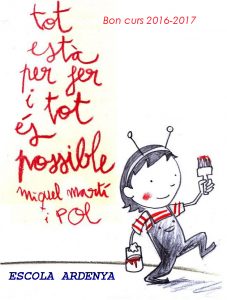 tot
està
per fer
i tot
és
possible
miquel martí
i POL
Bon curs 2016-2017
ESCOLA ARDENYA